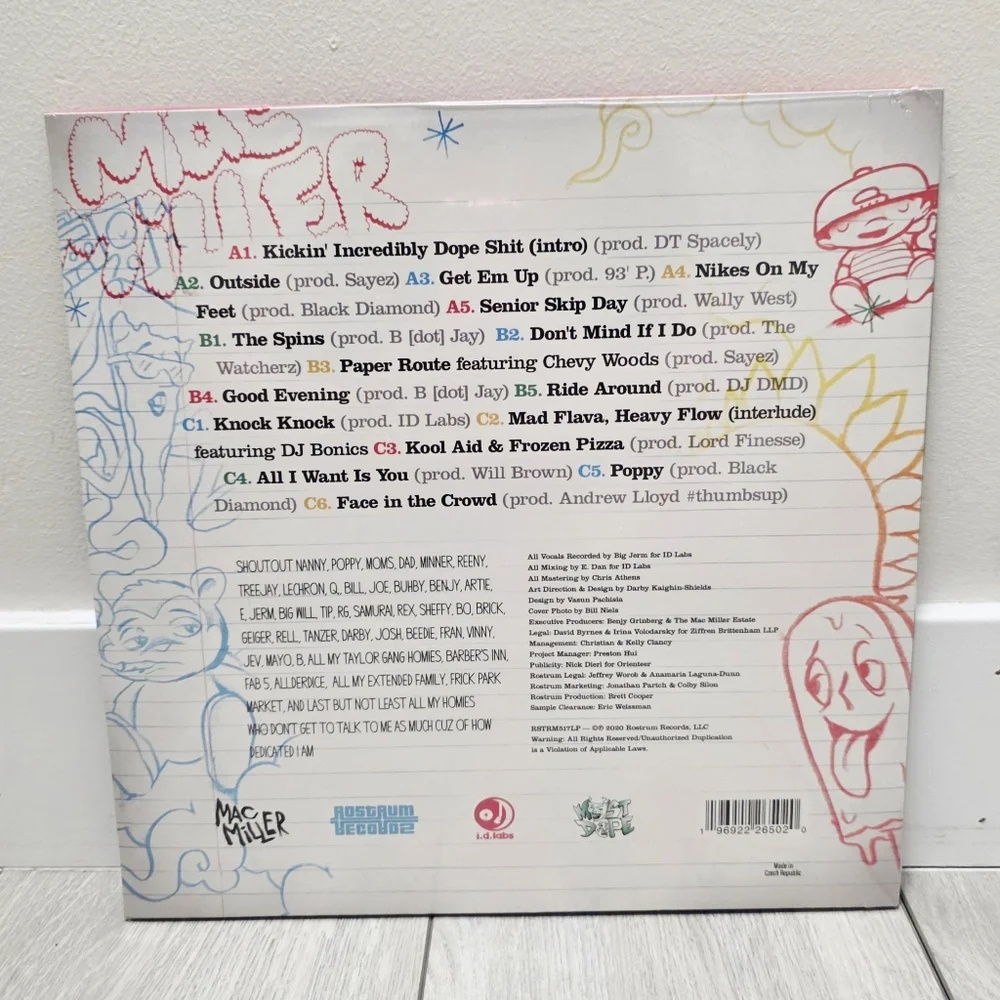 MAC
MILLER
A1. Kickin' Incredibly Dope Shit (intro) (prod. DT Spacely)
A2. Outside (prod. Sayez) A3. Get Em Up (prod. 93' P.) A4. Nikes On My
Feet (prod. Black Diamond) A5. Senior Skip Day (prod. Wally West)
B1. The Spins (prod. B [dot] Jay) B2. Don't Mind If I Do (prod. The
Watcherz) B3. Paper Route featuring Chevy Woods (prod. Sayez)
B4. Good Evening (prod. B [dot] Jay) B5. Ride Around (prod. DJ DMD)
C1. Knock Knock (prod. ID Labs) C2. Mad Flava, Heavy Flow (interlude)
featuring DJ Bonics C3. Kool Aid & Frozen Pizza (prod. Lord Finesse)
C4. All I Want Is You (prod. Will Brown) C5. Poppy (prod. Black
Diamond) C6. Face in the Crowd (prod. Andrew Lloyd #thumbsup)
SHOUTOUT NANNY, POPPY, MOMS, DAD, MINNER, REENY,
TREEJAY, LECHRON, Q, BILL, JOE, BUHBY, BENJY, ARTIE,
E, JERM, BIG WILL, TIP, RG, SAMURAI, REX, SHEFFY, BO, BRICK,
GEIGER, RELL, TANZER, DARBY, JOSH, BEEDIE, FRAN, VINNY,
JEV, MAYO, B, ALL MY TAYLOR GANG HOMIES, BARBER'S INN,
FAB 5, ALLDERDICE, ALL MY EXTENDED FAMILY, FRICK PARK
MARKET, AND LAST BUT NOT LEAST ALL MY HOMIES
WHO DON'T GET TO TALK TO ME AS MUCH CUZ OF HOW
DEDICATED I AM
All Vocals Recorded by Big Jerm for ID Labs
All Mixing by E. Dan for ID Labs
All Mastering by Chris Athens
Art Direction & Design by Darby Kaighin-Shields
Design by Vasun Pachisia
Cover Photo by Bill Niels
Executive Producers: Benjy Grinberg & The Mac Miller Estate
Legal: David Byrnes & Irina Volodarsky for Ziffren Brittenham LLP
Management: Christian & Kelly Clancy
Project Manager: Preston Hui
Publicity: Nick Dierl for Orienteer
Rostrum Legal: Jeffrey Worob & Anamaria Laguna-Dunn
Rostrum Marketing: Jonathan Partch & Colby Silon
Rostrum Production: Brett Cooper
Sample Clearance: Eric Weissman
RSTRM517LP — ©℗ 2020 Rostrum Records, LLC
Warning: All Rights Reserved/Unauthorized Duplication
is a Violation of Applicable Laws.
MAC
MILLER
ROSTRUM
RECORDS
i.d.labs
MOST
DOPE
1 96922 26502 0
Made in
Czech Republic